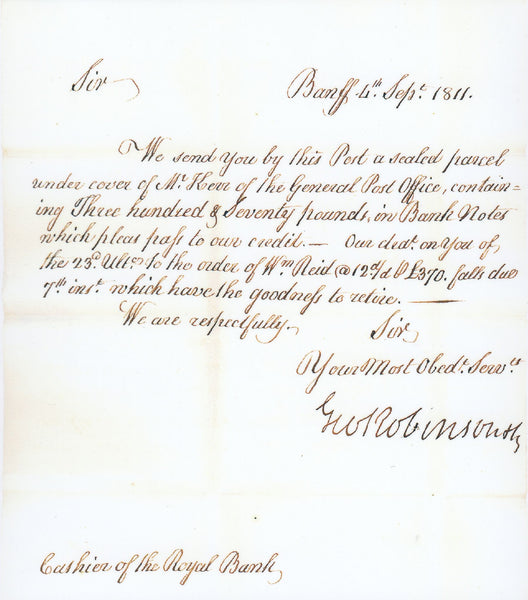 Sir
Banff 4th. Sept. 1811.
We send You by this Post a sealed parcel
under cover of Mr. Kerr of the General Post Office, contain=
ing Three hundred & Seventy pounds, in Bank Notes
which pleas pass to our credit.— Our dra't. on You of
the 23d. Ulto. to the order of Wm. Reid @ 12 d/d £370. falls due
7th. inst. which have the goodness to retire. ———
We are respectfully.
Sir
Your Most Obedt. Servts
Geo Robinson
Cashier of the Royal Bank